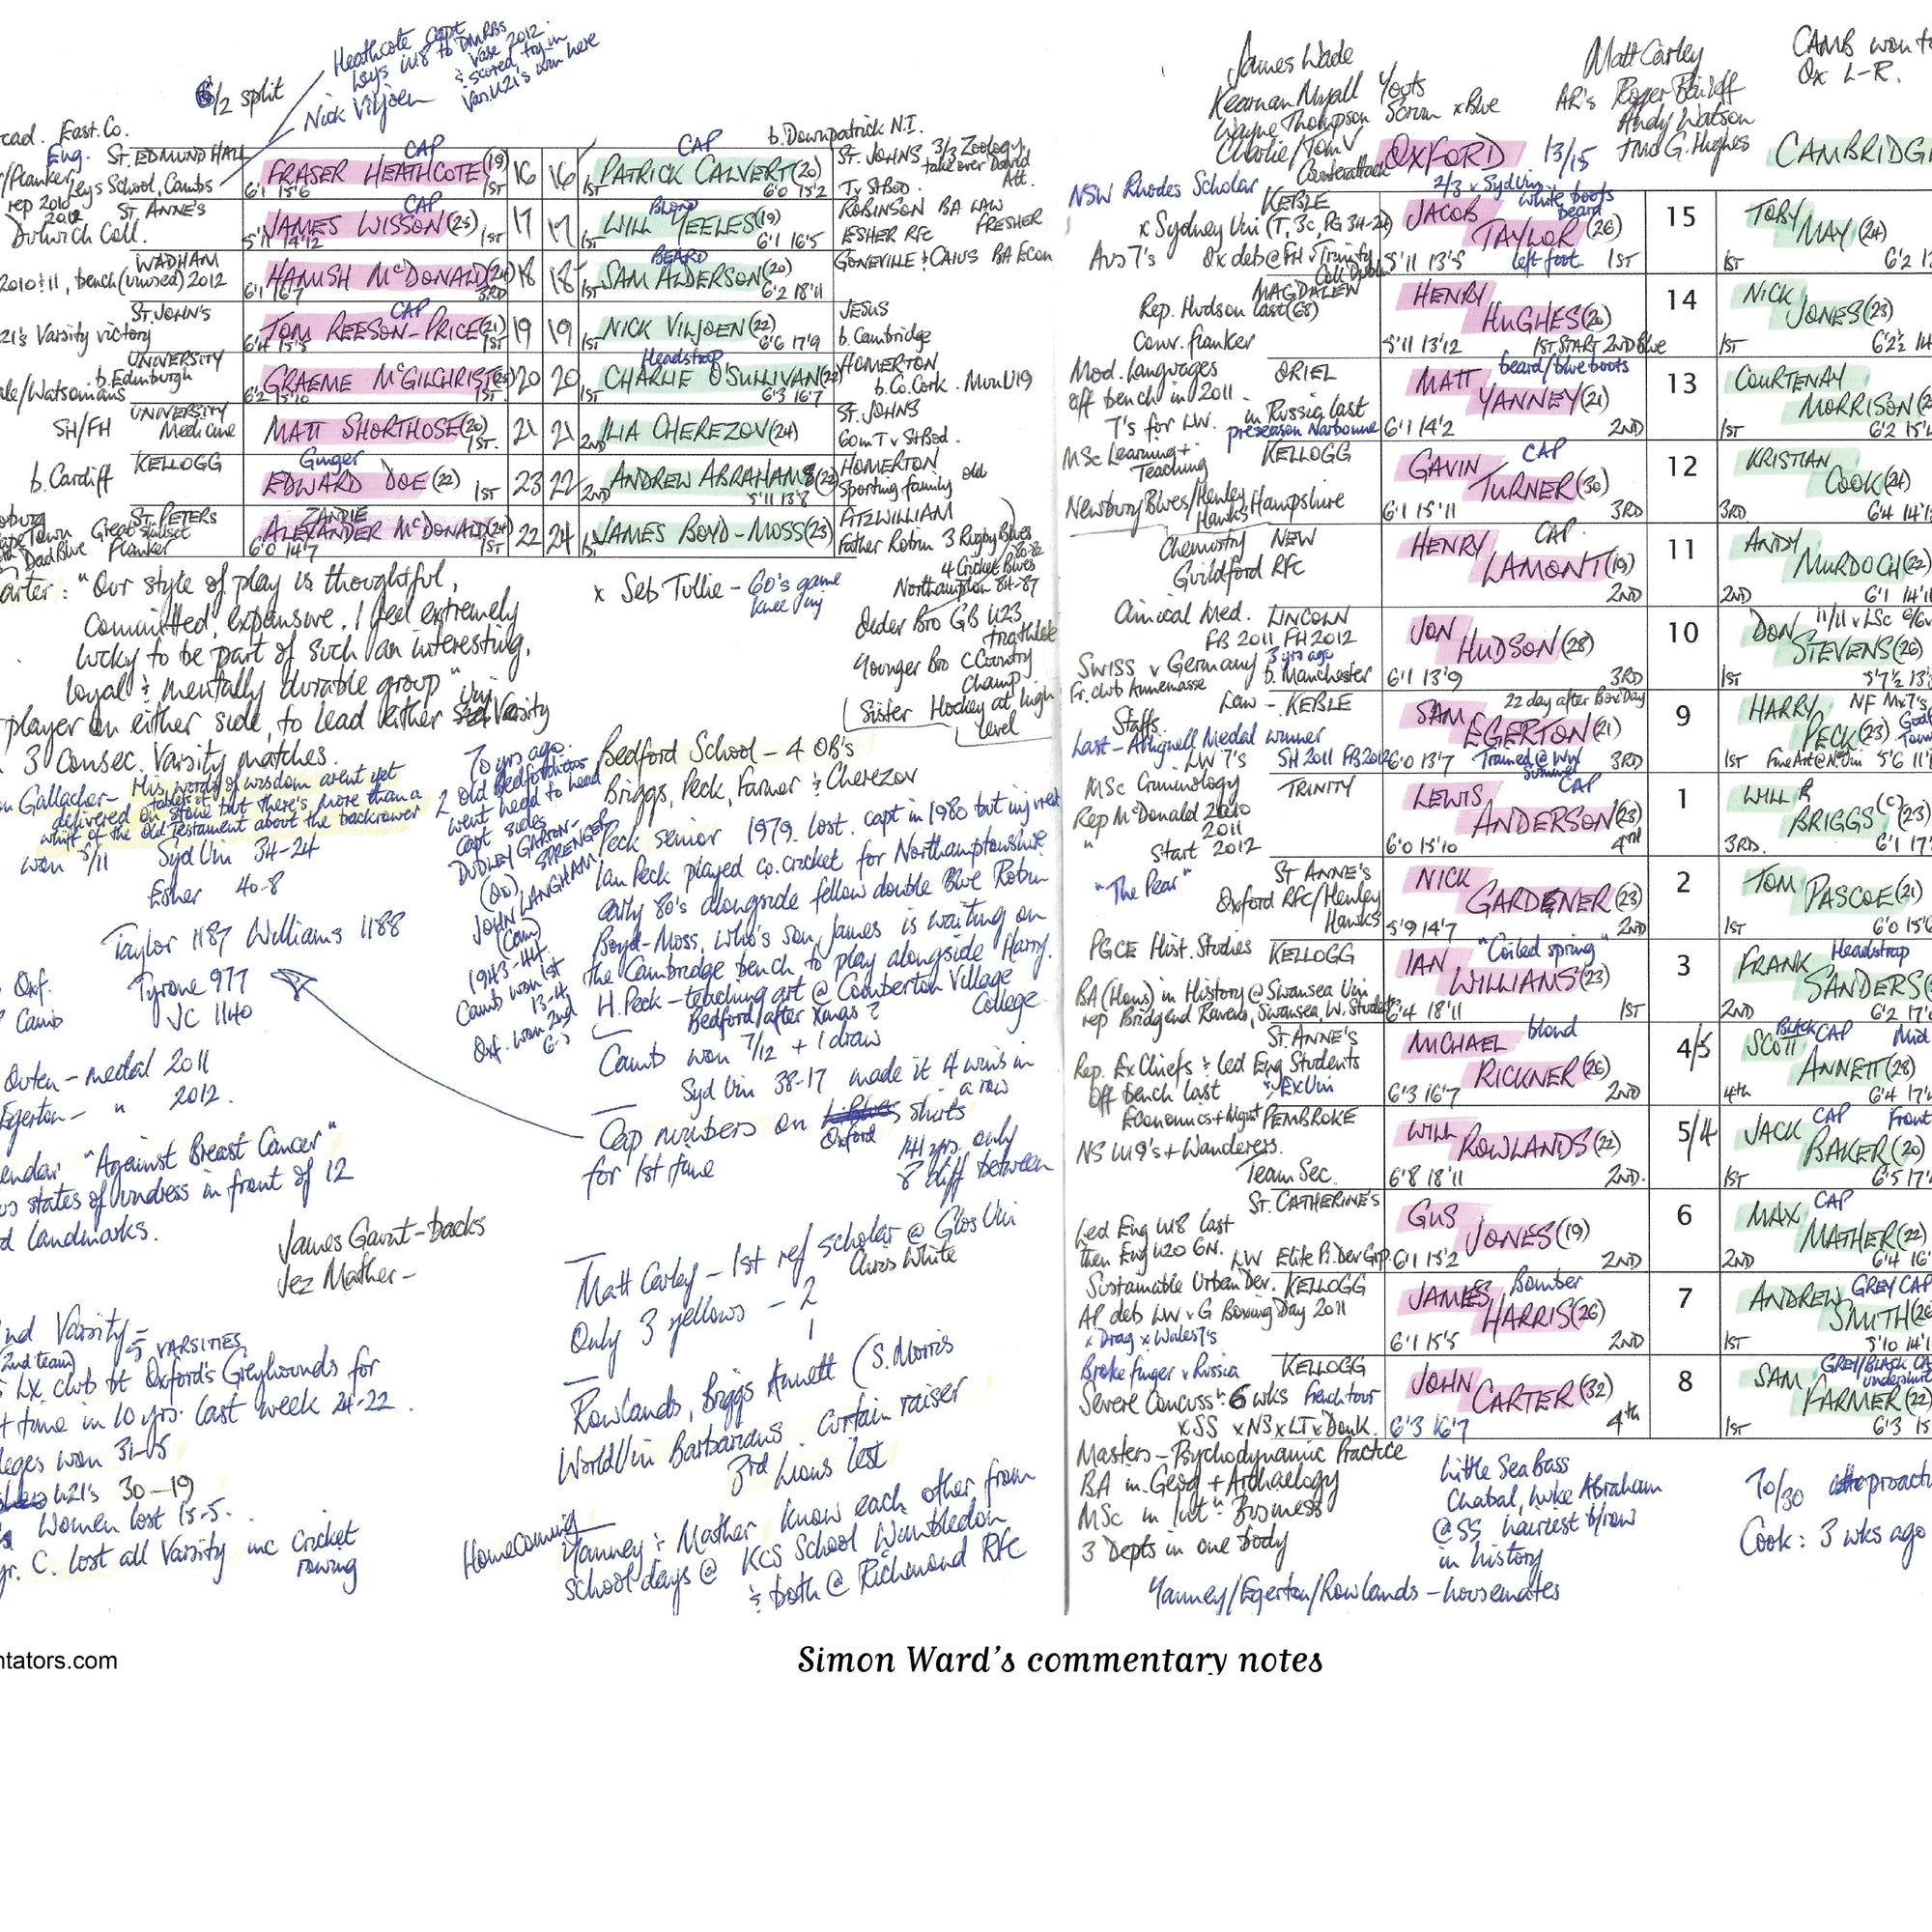 6/2 split
Heathcote capt
Leys U18 to DMRBS
Vase 2012
& scored try in
Var. U21's won here
Nick Viljoen
East. Co.
Eng.
ST. EDMUND HALL
Leys School, Cambs
rep 2010
2012
CAP
FRASER HEATHCOTE (19)
6'1 15'6 1ST
16
16
CAP
1ST PATRICK CALVERT (20)
6'0 15'2
b. Downpatrick N.I.
ST. JOHNS 3/3 Zoology,
take over David
Att.
Tv StBod.
ST. ANNE'S
Dulwich Coll.
CAP
JAMES WISSON (23)
5'11 14'12 1ST
17
17
BLOND
1ST WILL YEELES (19)
6'1 16'5
ROBINSON BA LAW
ESHER RFC FRESHER
WADHAM
2010 & 11, bench (unused) 2012
HAMISH McDONALD (24)
6'1 16'7 3RD
18
18
BEARD
1ST SAM ALDERSON (20)
6'2 18'11
GONEVILLE & CAIUS BA Econ
ST. JOHN'S
21's Varsity victory
CAP
TOM REESON-PRICE (21)
6'4 15'5 1ST
19
19
1ST NICK VILJOEN (22)
6'6 17'9
JESUS
b. Cambridge
UNIVERSITY
b. Edinburgh
ale/Watsonians
GRAEME McGILCHRIST (25)
6'2 15'10 1ST.
20
20
Headstrap
1ST CHARLIE O'SULLIVAN (22)
6'3 16'7
HOMERTON
b. Co. Cork. Mun U19
UNIVERSITY
SH/FH Medicine
MATT SHORTHOSE (20)
1ST.
21
21
2ND ILIA CHEREZOV (24)
ST. JOHNS
60m T v StBod.
KELLOGG
b. Cardiff
Ginger
EDWARD DOE (22) 1ST
23
22
2ND ANDREW ABRAHAMS (22)
5'11 13'8
HOMERTON
Sporting family old
ST. PETERS
Great skillset
Dad Blue Flanker
ZANDIE
ALEXANDER McDONALD (24)
6'0 14'7 1ST
22
24
1ST JAMES BOYD-MOSS (23)
FITZWILLIAM
Father Robin 3 Rugby Blues
80-82
4 Cricket Blues
Northampton 84-87
Older Bro GB U23
triathlete
Younger Bro C Country
Champ
Sister Hockey at high
level
x Seb Tullie - 60's game
knee inj
arter: "Our style of play is thoughtful,
committed, expansive. I feel extremely
lucky to be part of such an interesting,
loyal & mentally durable group"
player on either side, to lead either Uni Varsity
3 Consec. Varsity matches.
n Gallagher - His words of wisdom arent yet
delivered on tablets of stone but there's more than a
whiff of the Old Testament about the backrower
won 5/11 Syd Uni 34-24
Esher 40-8
Taylor 1187 Williams 1188
Oxf. Tyrone 977
Camb JC 1140
Outen - medal 2011
Egerton - " 2012.
endar "Against Breast Cancer"
us states of undress in front of 12
d landmarks.
James Gaunt - backs
Jez Mather -
2nd Varsity =
(2nd team) 5 VARSITIES.
LX club bt Oxford's Greyhounds for
t time in 10 yrs. last week 24-22.
leges won 31-5
U21's 30-19
Women lost 15-5.
yr. C. lost all Varsity inc Cricket
rowing
70 yrs ago.
2 old Bedfordians
went head to head
capt sides
DUDLEY GARTON-
SPRENGER
(Ox)
JOHN LANGHAM
(Cam)
1943-44.
Camb won 1st
13-4
Oxf. won 2nd
6-3
Bedford School - 4 OB's
Briggs, Peck, Farmer & Cherezov
Peck senior 1979. lost. capt in 1980 but inj rest
Ian Peck played co. cricket for Northamptonshire
early 80's alongside fellow double Blue Robin
Boyd-Moss, who's son James is waiting on
the Cambridge bench to play alongside Harry.
H. Peck - teaching art @ Comberton Village
College
Bedford after Xmas?
Camb won 7/12 + 1 draw
Syd Uni 38-17 made it 4 wins in
a row
Cap numbers on Oxford shirts
for 1st time
141 yrs. only
8 diff between
Matt Carley - 1st ref scholar @ Glos Uni
Chris White
Only 3 yellows - 2
1
Rowlands, Briggs Annett (S. Morris
World Uni Barbarians. Curtain raiser
3rd Lions Test
Homecoming
Yanney & Mather know each other from
school days @ KCS School Wimbledon
& both @ Richmond RFC
James Wade
Kearnan Myall
Wayne Thompson
Charlie/Tom V
Counterattack
Yoots
Scrum x Blue
Matt Carley
AR's
Andy Watson
TMO G. Hughes
CAMB won t
Ox L-R.
OXFORD 13/15
CAMBRIDG
NSW Rhodes Scholar
KEBLE
x Sydney Uni (T, 3c, PG 34-24)
Aus 7's Ox deb @ FH v Trinity
Coll Dublin
2/3 v Syd Uni
white boots
beard
JACOB
TAYLOR (26)
5'11 13'5 left foot 1ST
15
TOBY
MAY (24)
1ST 6'2
MAGDALEN
Rep. Hudson last (68)
Conv. flanker
HENRY
HUGHES (20)
5'11 13'12 1ST START 2ND Blue
14
NICK
JONES (23)
1ST 6'2½
Mod. Languages ORIEL
off bench in 2011.
7's for LW. in Russia last
preseason Narbonne
beard/blue boots
MATT
YANNEY (21)
6'1 14'2 2ND
13
COURTENAY
MORRISON
1ST 6'2 15'
MSc Learning + KELLOGG
Teaching
Newbury Blues/Henley Hampshire
Hawks
CAP
GAVIN
TURNER (30)
6'1 15'11 3RD
12
KRISTIAN
COOK (24)
3RD 6'4 14'
Chemistry NEW
Guildford RFC
CAP
HENRY
LAMONT (19)
2ND
11
ANDY
MURDOCH (22)
2ND 6'1 14'11
Clinical Med. LINCOLN
FB 2011 FH 2012
Swiss v Germany 3 yrs ago
Fr. club Annemasse b. Manchester
JON
HUDSON (28)
6'1 13'9 3RD
10
11/11 v LSc 6/6
DON
STEVENS (26)
1ST 5'7½ 13'
Law - KEBLE
Staffs
Last - Alhignell Medal winner
LW 7's SH 2011 FB 2012
22 day after Box Day
SAM
EGERTON (21)
6'0 13'7 Trained @ Wy
summer 3RD
9
HARRY NF Mx 7's
PECK (23)
1ST Fine Art @ N. Uni 5'6 11'
MSc Criminology TRINITY
Rep McDonald 2010
2011
" Start 2012
CAP
LEWIS
ANDERSON (23)
6'0 15'10 4th
1
WILL R
BRIGGS (c) (23)
3RD. 6'1 17'
"The Pear" ST ANNE'S
Oxford RFC/Henley
Hawks
NICK
GARDENER (23)
5'9 14'7 2ND
2
TOM
PASCOE (21)
1ST 6'0 15'
PGCE Hist. Studies KELLOGG
BA (Hons) in History @ Swansea Uni
rep Bridgend Ravens, Swansea, W. Students
IAN "Coiled spring"
WILLIAMS (23)
6'4 18'11 1ST
3
Headstrap
FRANK
SANDERS
2ND 6'2 17'
ST. ANNE'S
Rep. Ex Chiefs & led Eng Students
Off bench last & Ex Uni
MICHAEL blond
RICKNER (26)
6'3 16'7 2ND
4/5
BLACK CAP Mid
SCOTT
ANNETT (28)
4th 6'4 17'
Economics + Mgmt PEMBROKE
NS U19's + Wanderers.
Team Sec.
WILL
ROWLANDS (22)
6'8 18'11 2ND.
5/4
CAP Front
JACK
BAKER (20)
1ST 6'5 17'
ST. CATHERINE'S
Led Eng U18 last
then Eng U20 6N. LW Elite Pl. Dev Grp.
GUS
JONES (19)
6'1 15'2 2ND
6
CAP
MAX
MATHER (22)
2ND 6'4 16'
Sustainable Urban Dev. KELLOGG
AP deb LW v G Boxing Day 2011
x Drag x Wales 7's
Bomber
JAMES
HARRIS (26)
6'1 15'5 2ND
7
GREY CAP
ANDREW
SMITH
1ST 5'10 14'
Broke finger v Russia KELLOGG
Severe Concuss: 6 wks french tour
x SS x NS x LI x Donk.
JOHN
CARTER (32)
6'3 16'7 4th
8
GREY/BLACK CA
undershirt
SAM
FARMER (22)
1ST 6'3 15
Masters - Psychodynamic Practice
BA in Geog + Archaelogy
MSc in Int: Business
3 Depts in one body
Little Sea Bass
Chabal, Luke Abraham
@ SS hairiest b/row
in history
70/30
Cook: 3 wks ago
Yanney/Egerton/Rowlands - housemates
ntators.com
Simon Ward's commentary notes